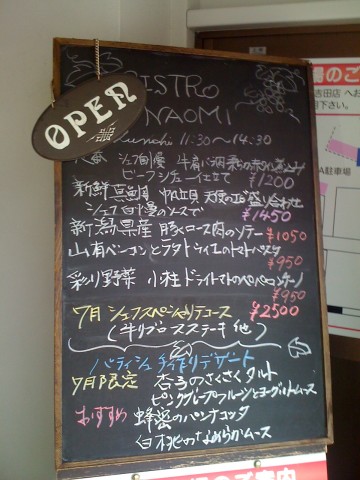 OPEN
BISTRO
NAOMI
Lunch 11:30〜14:30
シェフ自慢 牛肩
ビーフシチュー仕立て ¥1200
新鮮真鯛 帆立貝 天使の海老 盛り合わせ
シェフ自慢のソースで ¥1450
新潟県産 豚ロース肉のソテー ¥1050
ベーコンとラタトゥイユのトマトパスタ
¥950
彩り野菜 小柱 ドライトマトのペペロンチーノ
¥950
7月シェフスペシャリテコース ¥2500
(牛リブロースステーキ他)
パティシェ手作りデザート
7月限定 杏子のさくさくタルト
ピンクグレープフルーツとヨーグルトムース
おすすめ 蜂蜜のパンナコッタ
白桃のなめらかムース
のご
吉田店 へお
下さい。
A駐車場
のご案内